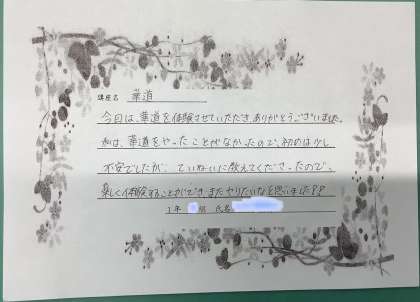 講座名 華道
今日は、華道を体験させていただきありがとうございました。
私は、華道をやったことがなかったので、初めは少し
不安でしたが、ていねいに教えてくださったので、
楽しく体験することができ、またやりたいなと思いました!!
1年 組 氏名